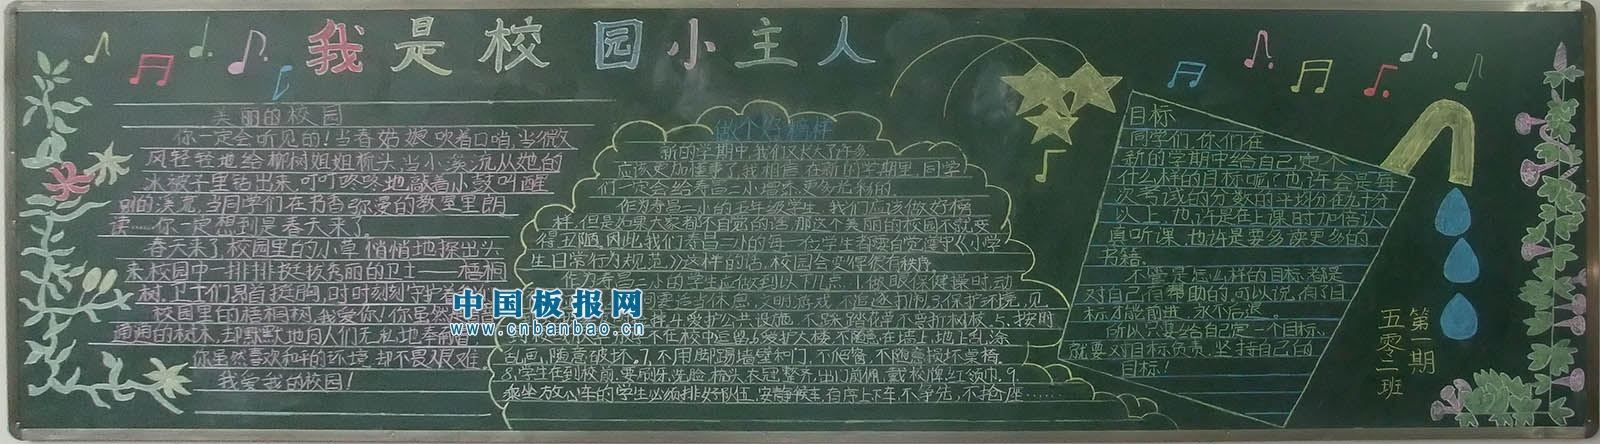 我是校园小主人
美丽的校园
你一定会听见的！当春姑娘吹着口哨，当微
风轻轻地给柳树姐姐梳头，当小溪流从她的
冰被子里钻出来，叮叮咚咚地敲着小鼓叫醒
别的溪流，当同学们在书香弥漫的教室里朗
读，你一定想到是春天来了。
春天来了，校园里的小草悄悄地探出头
来，校园中一排排挺拔美丽的卫士——梧桐
树，卫士们昂首挺胸，时时刻刻守护着
校园里的梧桐树，我爱你！你虽然
的树木，却默默地向人们无私地奉献着
你虽然喜欢和平的环境，却不畏艰难
我爱我的校园！
做个好榜样
新的学期中，我们又长大了许多，
应该更加懂事了，我相信在新的学期里，同学
们一定会给寿昌二小增添更多光彩的。
作为寿昌二小的五年级学生，我们应该做好榜
样，但是如果大家都不自觉的话，那这个美丽的校园不就变
得丑陋，因此，我们寿昌二小的每一位学生都要自觉遵守《小学
生日常行为规范》，这样的话，校园会变得很有秩序。
作为寿昌二小的学生应做到以下几点：1、做眼保健操时动
要适当休息，文明游戏，不追逐打闹，3、保护环境，见
爱护公共设施，不踩踏花草，不要折树枝，5、按时
不在校中逗留，6、爱护大楼，不随意在墙上、地上乱涂
乱画，随意破坏。7、不用脚踢墙壁和门，不爬餐，不随意损坏桌椅
8、学生在到校前，要刷牙、洗脸、梳头，衣冠整齐，出门前佩戴校牌、红领巾。9、
乘坐放心车的学生必须排好队伍，安静候车，有序上下车，不争先，不抢座……
目标
同学们，你们在
新的学期中给自己定个
什么样的目标呢？也许会是每
次考试的分数的平均分在九十分
以上，也许是在上课时加倍认
真听课，也许是要多读更多的
书籍。
不管是怎么样的目标，都是
对自己有帮助的，可以说，有了目
标才能前进，永不后退。
所以，要给自己定一个目标，
就要对目标负责，坚持自己的
目标！
第一期
五零二班
中国板报网
www.cnbanbao.cn